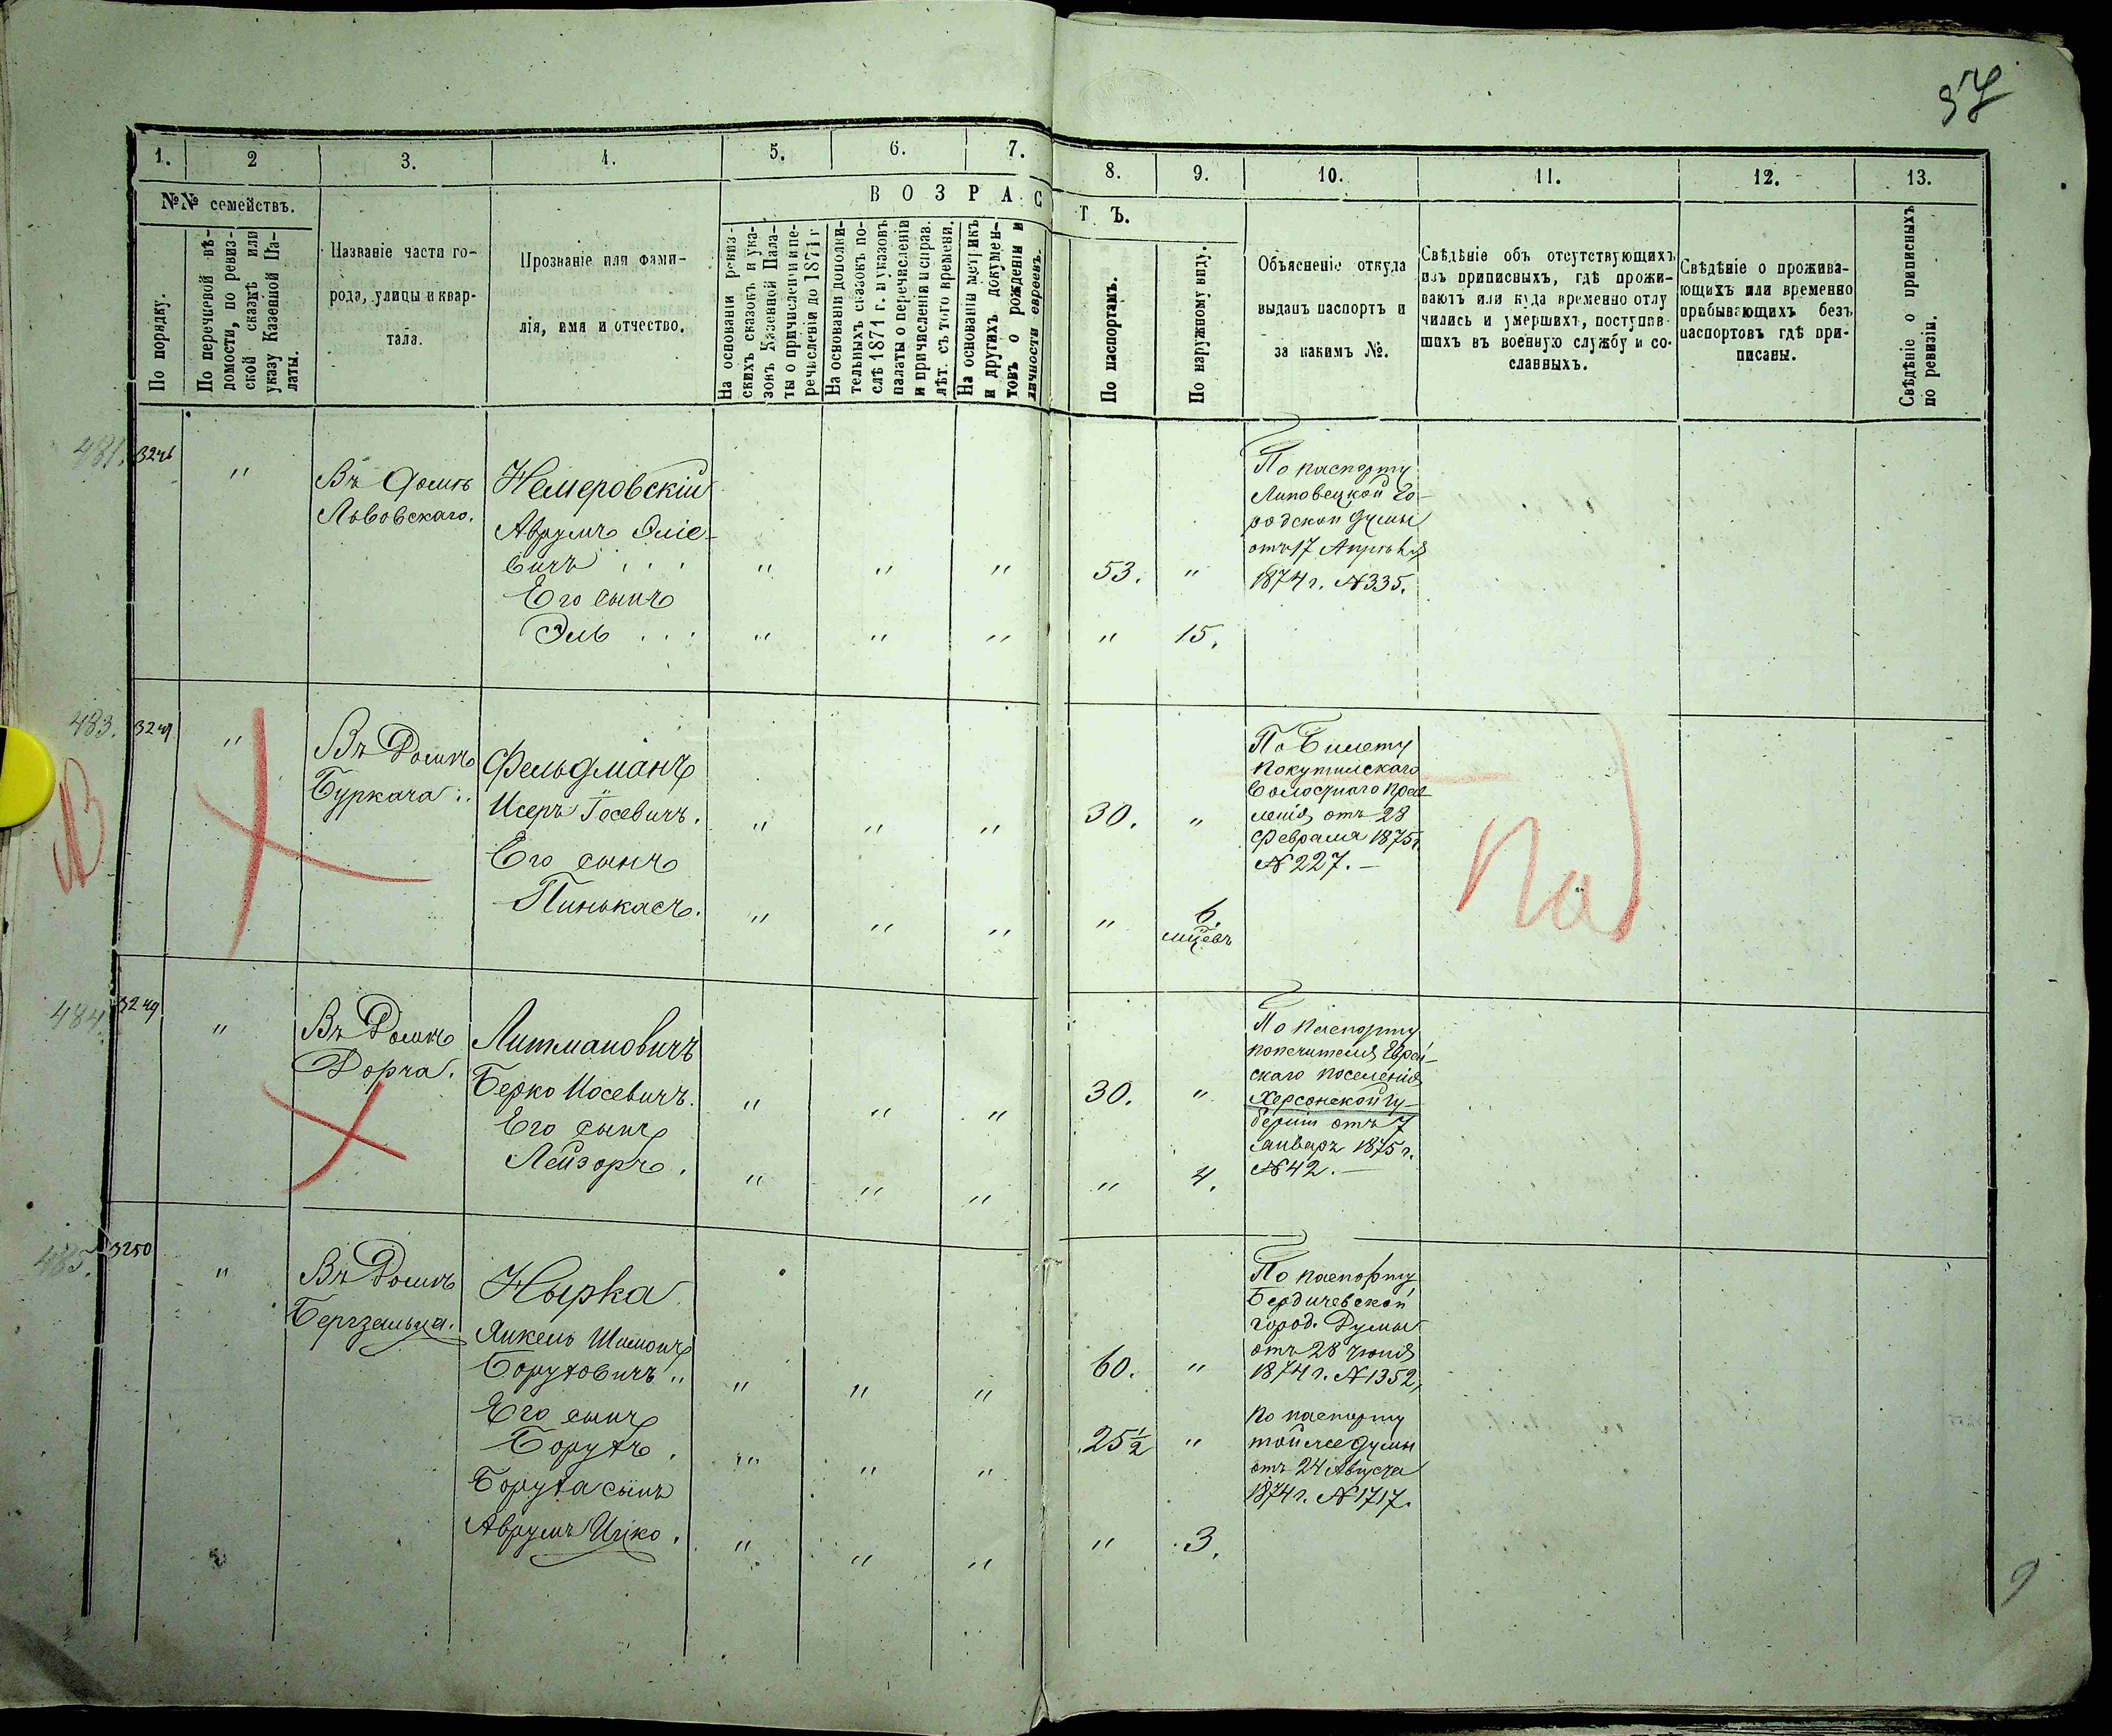 37
1. 2 3. 4. 5. 6. 7. 8. 9. 10. 11. 12. 13.
№№ семействъ.
В О З Р А С Т Ъ.
По порядку.
По перечневой вѣ-
домости, по ревиз-
ской сказкѣ или
указу Казенной Па-
латы.
Названіе части го-
рода, улицы и квар-
тала.
Прозваніе или фами-
лія, имя и отчество.
На основаніи ревиз-
скихъ сказокъ и ука-
зовъ Казенной Пала-
ты о причисленіи и пе-
речисленіи до 1871 г
На основаніи дополни-
тельныхъ сказокъ по-
слѣ 1871 г. и указовъ
палаты о перечисленіи
и причисленіи и справ.
лѣт. съ того времени.
На основаніи метрикъ
и другихъ докумен-
товъ о рожденіи и
личности евреевъ.
По паспортамъ.
По наружному виду.
Объясненіе откуда
выданъ паспортъ и
за какимъ №.
Свѣдѣніе объ отсутствующихъ
изъ приписныхъ, гдѣ прожи-
ваютъ или куда временно отлу
чились и умершихъ, поступив-
шихъ въ военную службу и со-
сланныхъ.
Свѣдѣніе о прожива-
ющихъ или временно
прибывающихъ безъ
паспортовъ гдѣ при-
писаны.
Свѣдѣніе о приписныхъ
по ревизіи.
481. 3246 "
Въ домѣ
Львовскаго.
Немеровскій
Аврумъ Эліе-
вичъ . . . " " " 53. "
Его сынъ
Эль . . . " " " " 15.
По паспорту
Липовецкой Го-
родской Думы
отъ 17 Апрѣля
1874 г. №335.
483. "
Въ Домѣ
Буркача
Фельдманъ
Исеръ Іосевичъ. " " " 30. "
Его сынъ
Пинькасъ. " " " " 6.
мцевъ
По билету
Покутинскаго
Волостнаго Прав-
ленія отъ 28
Февраля 1875 г.
№ 227. —
484. 3249 "
Въ Домѣ
Дорча.
Литмановичъ
Берко Иосевичъ. " " " 30. "
Его сынъ
Лейзоръ. " " " " 4.
По паспорту
попечителя Еврей-
скаго поселенія
Херсонской гу-
берніи отъ 7
Январъ 1875 г.
№42. —
485. 3250 "
Въ Домѣ
Нырка
Янкель Шимонъ
Борухович " " " 60. "
Его сынъ
Борухъ. " " " 25½ "
Боруха сынъ
Аврумъ Ицко. " " " " 3.
По паспорту
Бердичевской
город. Думы
отъ 28 Іюня
1874 г. №1352,
по паспорту
той же думы
отъ 24 Августа
1874 г. №1717.